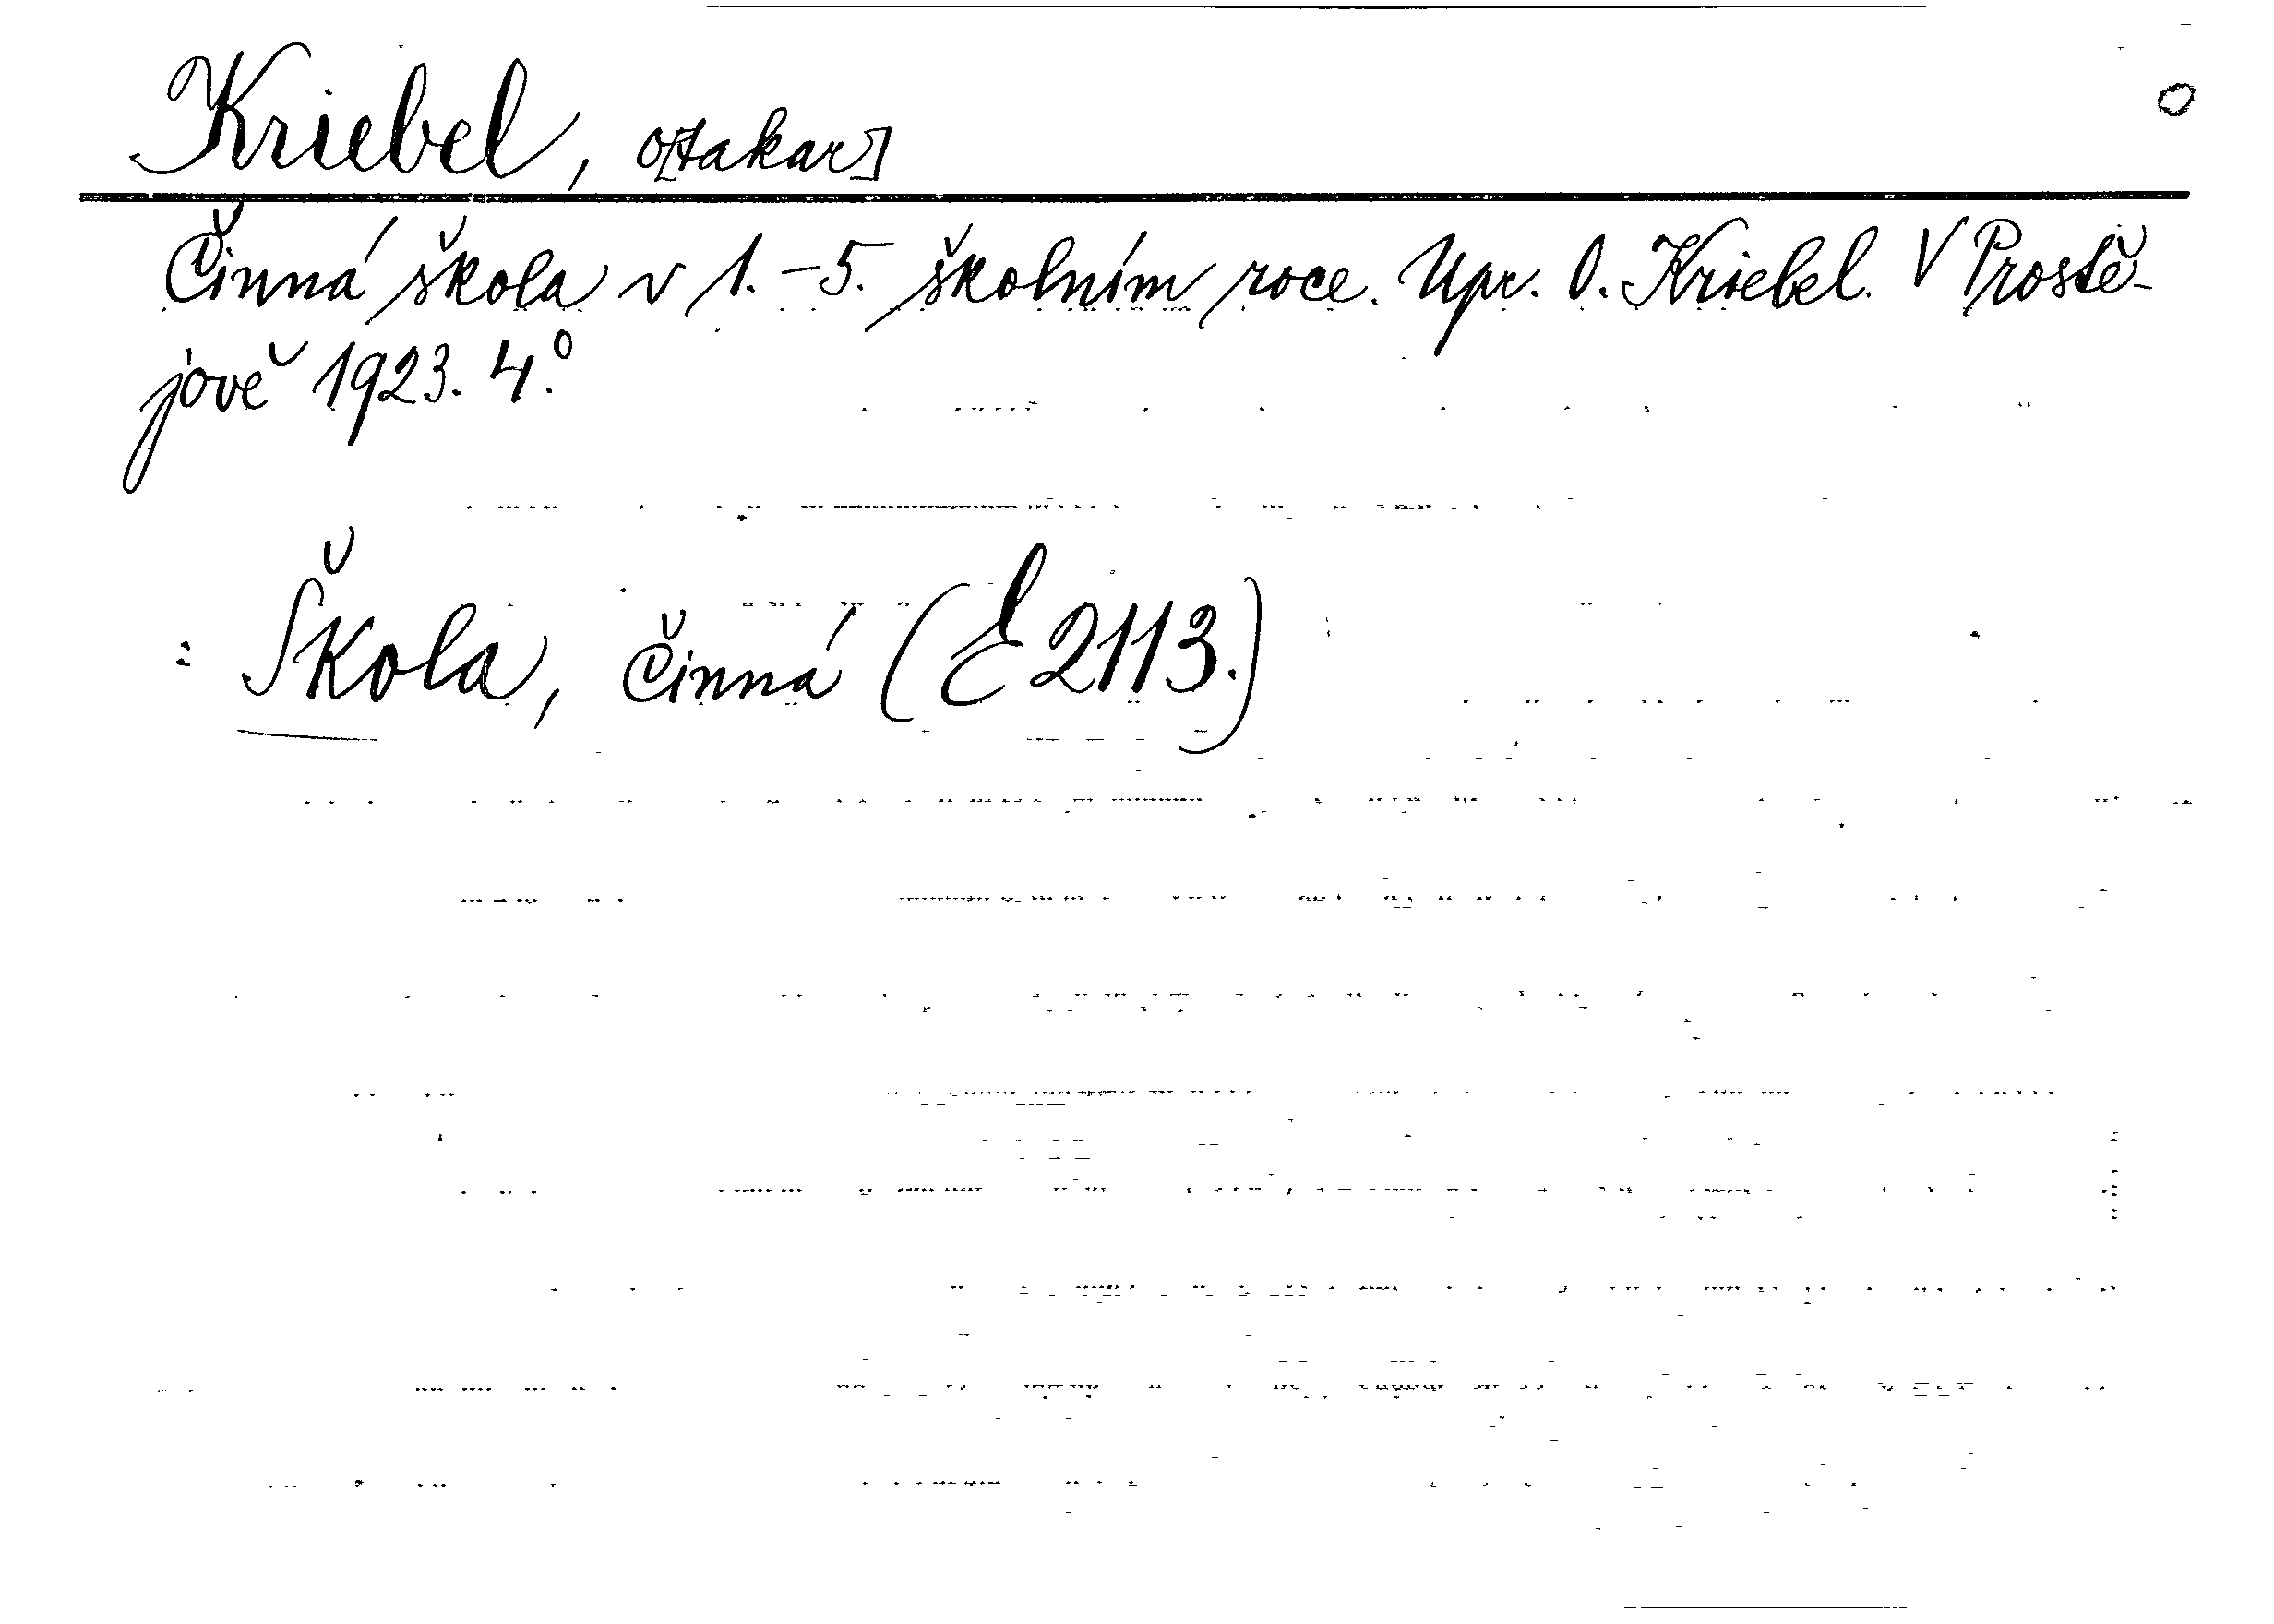 Kriebel, O[takar]
Činná škola v 1.–5. školním roce. Upr. O. Kriebel. V Prostě-
jově 1923. 4.°
: Škola, činná (E 2113.)